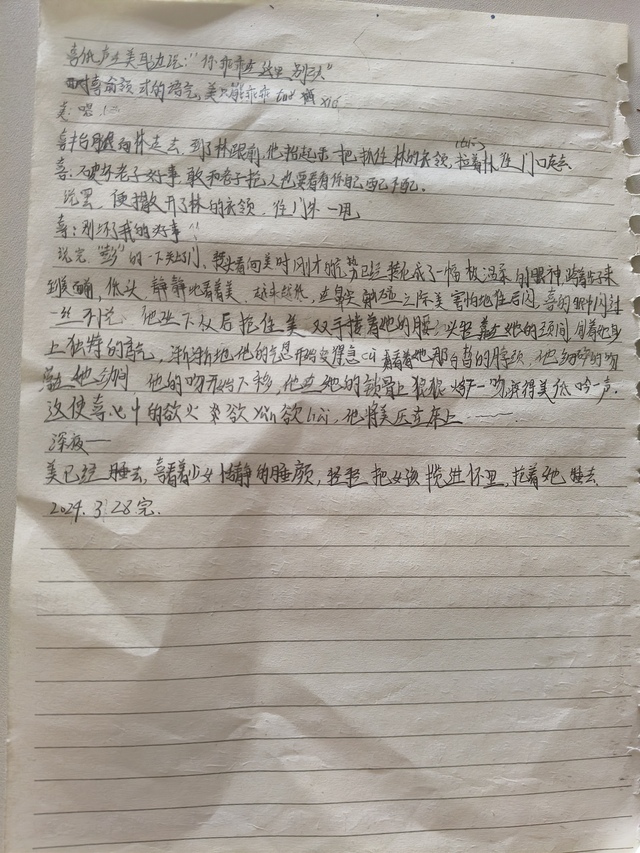 喜低声在美耳边说："你乖乖在这里，别动"
对喜命令式的语气，美只能乖乖
美：嗯
喜抬腿向林走去，到了林跟前，他抬起手一把抓住林的衣领，拉着林往门口走去
喜：破坏老子好事，敢和老子抢人也要看看你自己配不配。
说罺，便撒开了林的衣领，往门外一甩
喜：别坏了我的好事
说完"彭"的一下关上门，转头看向美时刚才的气势已经转化成了一幅极温柔的眼神，
低头，静静地看着美，越来越近，在鼻尖触碰之际美害怕地往后闪，喜的眼中闪过
一丝不悦。他坐下从后抱住美，双手搂着她的腰，头轻靠在她的颈间，闻着她身
上独特的香气，渐渐地，他的气息开始变得急cu，看着她那白皙的脖颈，他
他的吻开始下移，他在她的锁骨上狠狠一吻，美低吟一声。
这使喜心中的欲火 欲 欲 ，他将美压在床上……
深夜—
美已经睡去，喜看着少女恬静的睡颜，轻轻把女孩揽进怀里，抱着她睡去
2024.3.28完.